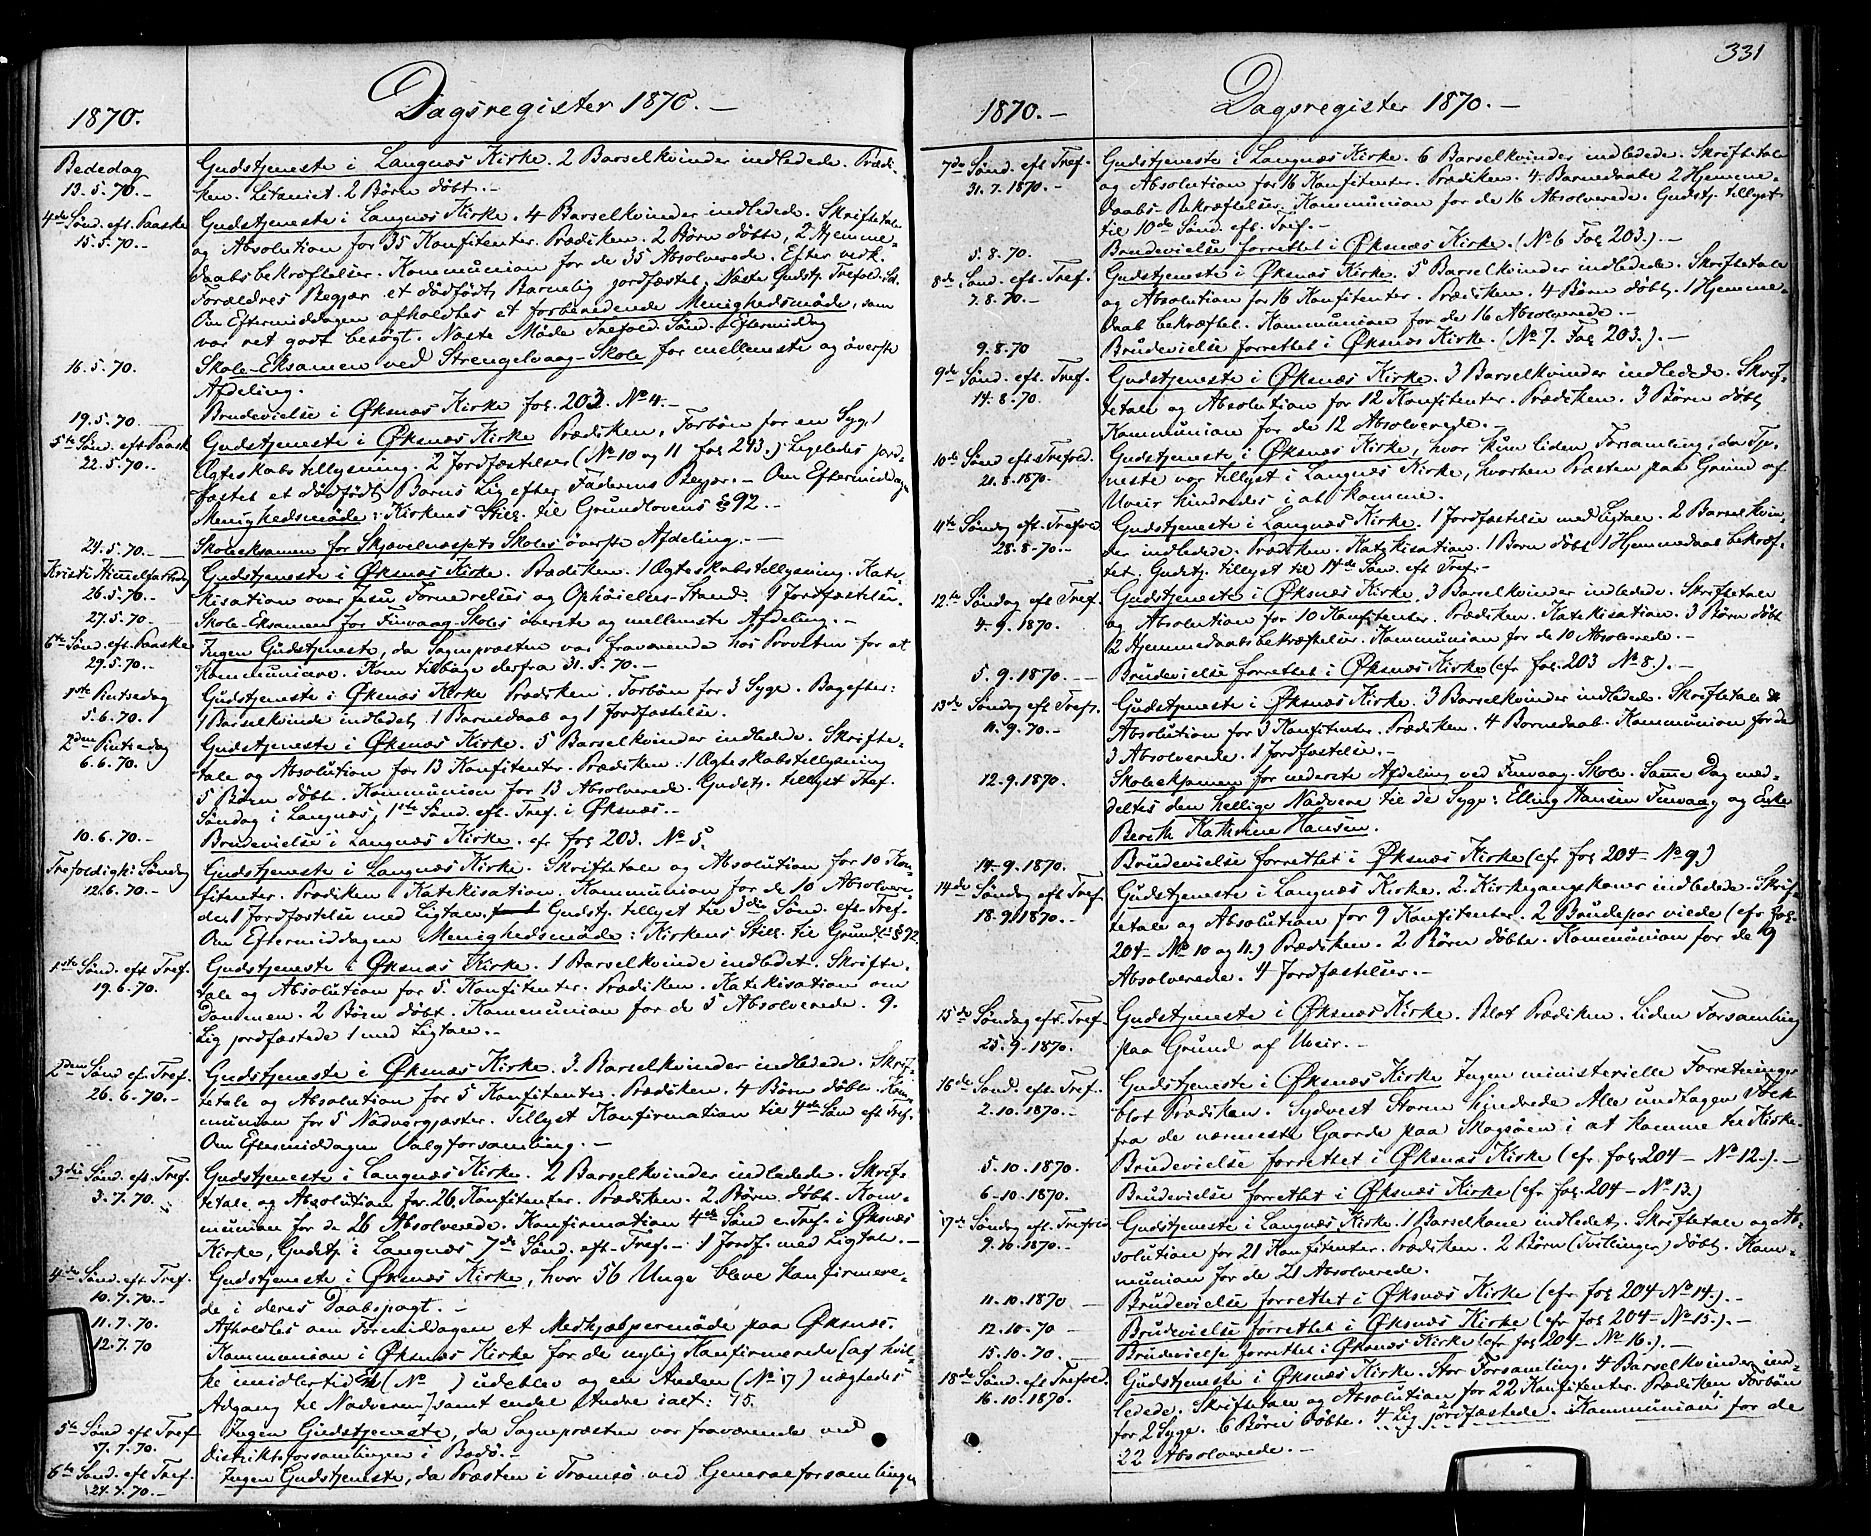 1870.
Dagsregister 1870. —
Bededag
13.5.70. —
Gudstjeneste i Langnæs Kirke. 2 Barselkvinder indledede. Prædi-
ken. Litaniet. 2 Børn døbt. —
4de Sønd. eft. Paaske
15.5.70. —
Gudstjeneste i Langnæs Kirke. 4 Barselkvinder indledede. Skriftetale
og Absolution for 35 Konfitenter. Prædiken. 2 Børn døbte, 2 Hjemme-
daabsbekræftelser. Kommunion for de 35 Absolverede. Efter
Forældres Begjær et dødfødt Barnelig jordfæstet. Næste Gudstj. Trefold. Sø.
Om Eftermiddagen afholdtes et forberedende Menighedsmøde, som
var ret godt besøgt. Næste Møde Trefold. Sønd. Eftermiddag
16.5.70.
Skole-Eksamen ved Strengelvaag-Skole for mellemste og øverste
Afdeling.
19.5.70. —
Brudevielse i Øksnæs Kirke fol. 203. No 4. —
5te Sønd. eft. Paask
22.5.70. —
Gudstjeneste i Øksnæs Kirke Prædiken, Forbøn for en Syg, 1
Ægteskabstillysning. 2 Jordfæstelser (No 10 og 11 fol 243.) Ligeledes jord-
fæstet et dødfødt Barns Lig efter Faderens Begjær. — Om Eftermiddag
Menighedsmøde: Kirkens Still. til Grundlovens § 92. —
24.5.70. —
Skoleeksamen for Skjævelnæssets Skoles øverste Afdeling. —
Kristi Himmelfartsdag
26.5.70. —
Gudstjeneste i Øksnæs Kirke. Prædiken. 1 Ægteskabstillysning. Kate-
kisation over Jesu Fornedrelses og Ophøielses-Stand. 1 Jordfæstelse.
27.5.70. —
Skole-Eksamen for Finvaag-Skoles øverste og mellemste Afdeling. —
6te Sønd. eft. Paaske
29.5.70. —
Ingen Gudstjeneste, da Sognepræsten var fraværende hos Provsten for at
kommunicere. Kom tilbage derfra 31.5.70. —
1ste Pintsedag
5.6.70. —
Gudstjeneste i Øksnæs Kirke Prædiken. Forbøn for 3 Syge. Bagefter:
1 Barselkvinde indledet, 1 Barnedaab og 1 Jordfæstelse.
2den Pintsedag
6.6.70. —
Gudstjeneste i Øksnæs Kirke. 5 Barselkvinder indledede. Skrifte-
tale og Absolution for 13 Konfitenter. Prædiken. 1 Ægteskabstillysning
5 Børn døbte. Kommunion for 13 Absolverede. Gudstj. tillyst Tref.
Søndag i Langnæs, 1ste Sønd. eft. Tref. i Øksnæs. —
10.6.70. —
Brudevielse i Langnæs Kirke. cfr fol 203. No 5.
Trefoldigh: Søndag
12.6.70. —
Gudstjeneste i Langnæs Kirke. Skriftetale og Absolution for 10 Kon-
fitenter. Prædiken. Katekisation. Kommunion for de 10 Absolvere-
de. 1 Jordfæstelse med Ligtale. Gudstj. tillyst til 3die Sønd. eft. Tref.
Om Eftermiddagen Menighedsmøde: Kirkens Still. til Grundl. § 92
1ste Sønd. eft Tref.
19.6.70.
Gudstjeneste i Øksnæs Kirke. 1 Barselkvinde indledet. Skrifte-
tale og Absolution for 5 Konfitenter. Prædiken. Katekisation om
Dommen. 2 Børn døbt. Kommunion for de 5 Absolverede. 9.
Lig jordfæstede 1 med Ligtale. —
2den Sønd ef. Tref.
26.6.70. —
Gudstjeneste i Øksnæs Kirke. 3 Barselkvinder indledede. Skrif-
tetale og Absolution for 5 Konfitenter. Prædiken. 4 Børn døbte. Kom-
munion for 5 Nadvergjæster. Tillyst Konfirmation til 4de Søn eft Tref.
Om Eftermiddagen Valgforsamling. —
3die Sønd. eft. Tref.
3.7.70. —
Gudstjeneste i Langnæs Kirke. 2 Barselkvinder indledede. Skrif-
tetale og Absolution for 26 Konfitenter. Prædiken. 2 Børn døbt. Kom-
munion for de 26 Absolverede. Konfirmation 4de Sønd e. Tref. i Øksnæs
Kirke, Gudstj. i Langnæs 7de Sønd. eft. Tref. — 1 Jordf. med Ligtale. —
4de Sønd. eft Tref.
10.7.70. —
Gudstjeneste i Øksnæs Kirke, hvor 56 Unge bleve konfirmere-
de i deres Daabspagt. —
11.7.70.
Afholdtes om Formiddagen et Medhjælpermøde paa Øksnæs.
12.7.70
Kommunion i Øksnæs Kirke for de nylig Konfirmerede (af hvil-
ke imidlertid (No ) udeblev og en Anden (No 17) nægtedes
Adgang til Nadveren), samt endel Andre ialt: 75.
5te Sønd eft Tref
17.7.70.
Ingen Gudstjeneste, da Sognepræsten var fraværende ved
Distriktsforsamlingen i Bodø. —
6te Sønd. eft Tref.
24.7.70. —
Ingen Gudstjeneste, da Præsten i Tromsø ved Generalforsamlingen
331
1870. —
Dagsregister 1870. —
7de Sønd. eft Tref.
31.7.1870. —
Gudstjeneste i Langnæs Kirke. 6 Barselkvinder indledede. Skriftetale
og Absolution for 16 Konfitenter. Prædiken. 4 Barnedaabe 2 Hjemme-
daabs-Bekræftelser. Kommunion for de 16 Absolverede. Gudstj. tillyst
til 10de Sønd. eft. Tref. —
5.8.70.
Brudevielse forrettet i Øksnæs Kirke. (No 6 Fol 203.). —
8de Sønd. eft. Tref.
7.8.70. —
Gudstjeneste i Øksnæs Kirke. 5 Barselkvinder indledede. Skriftetale
og Absolution for 16 Konfitenter. Prædiken. 4 Børn døbt. 1 Hjemme-
daab bekræftet. Kommunion for de 16 Absolverede. —
9.8.70
Brudevielse forrettet i Øksnæs Kirke. (No 7. Fol 203.). —
9de Sønd. eft. Tref.
14.8.70. —
Gudstjeneste i Øksnæs Kirke. 3 Barselkvinder indledede. Skrif-
tetale og Absolution for 12 Konfitenter. Prædiken. 3 Børn døbt,
Kommunion for de 12 Absolverede. —
10de Sønd eft Trefold.
21.8.1870.
Gudstjeneste i Øksnæs Kirke, hvor kun liden Forsamling, da Tje-
neste var tillyst i Langnæs Kirke, hvorhen Præsten paa Grund af
Uveir hindredes i at komme.
11te Søndg eft. Trefold
28.8.70. —
Gudstjeneste i Langnæs Kirke. 1 Jordfæstelse med Ligtale. 2 Barselkvin-
der indledede. Prædiken. Katekisation. 1 Barn døbt 1 Hjemmedaab bekræf-
tet. Gudstj. tillyst til 14de Sønd. eft Tref. —
12te Søndag eft Tref.
4.9.1870.
Gudstjeneste i Øksnæs Kirke, 3 Barselkvinder indledede. Skriftetale
og Absolution for 10 Konfitenter. Prædiken. Katekisation. 3 Børn døbt
2 Hjemmedaabsbekræftelser. Kommunion for de 10 Absolverede. —
5.9.1870. —
Brudevielse forrettet i Øksnæs Kirke (cfr fol 203 No 8.). —
13de Søndg eft Tref.
11.9.70. —
Gudstjeneste i Øksnæs Kirke. 3 Barselkvinder indledede. Skriftetale &
Absolution for 3 Konfitenter. Prædiken. 4 Barnedaab. Kommunion for de
3 Absolverede. 1 Jordfæstelse. —
12.9.1870.
Skoleeksamen for nederste Afdeling ved Finvaag-Skole. Samme Dag med-
deltes den hellige Nadvere til de Syge: Elling Hansen Finvaag og Enke
Bereth Kathrine Hansen.
14.9.1870.
Brudevielse forrettet i Øksnæs Kirke (cfr fol 204 — No 9.)
14de Søndg eft Tref.
18.9.1870. —
Gudstjeneste i Langnæs Kirke. 2 Kirkegangskoner indledede. Skrif-
tetale og Absolution for 9 Konfitenter. 2 Brudepar viede (cfr fol.
204 — No 10 og 11.) Prædiken. 2 Børn døbte. Kommunion for de 9
Absolverede. 4 Jordfæstelser. —
15de Søndag eft. Tref.
25.9.1870.
Gudstjeneste i Øksnæs Kirke. Blot Prædiken. Liden Forsamling
paa Grund af Uveir. —
16de Sønd. eft. Tref.
2.10.1870. —
Gudstjeneste i Øksnæs Kirke Ingen ministerielle Forretninger
blot Prædiken. Sydvest Storm hindrede Alle undtagen Folk
fra de nærmeste Gaarde paa Skogsøen i at komme til Kirke.
5.10.1870.
Brudevielse forrettet i Øksnæs Kirke (cfr fol 204 — No 12.). —
6.10.1870.
Brudevielse forrettet i Øksnæs Kirke (cfr fol 204 — No 13.)
17de Søndg eft. Trefold
9.10.1870. —
Gudstjeneste i Langnæs Kirke. 1 Barselkone indledet. Skriftetale og Ab-
solution for 21 Konfitenter. Prædiken. 2 Børn (Tvillinger) døbt. Kom-
munion for de 21 Absolverede.
11.10.1870 —
Brudevielse forrettet i Øksnæs Kirke (cfr fol 204 No 14.). —
12.10.70 —
Brudevielse forrettet i Øksnæs Kirke (cfr fol 204 — No 15.). —
15.10.70. —
Brudevielse forrettet i Øksnæs Kirke (cfr fol 204 — No 16.). —
18de Sønd. eft Trefold.
16.10.1870.
Gudstjeneste i Øksnæs Kirke. Stor Forsamling. 4 Barselkvinder ind-
ledede. Skriftetale og Absolution for 22 Konfitenter. Prædiken Forbøn
for 2 Syge. 6 Børn døbte. 4 Lig jordfæstede. Kommunion for de
22 Absolverede. —